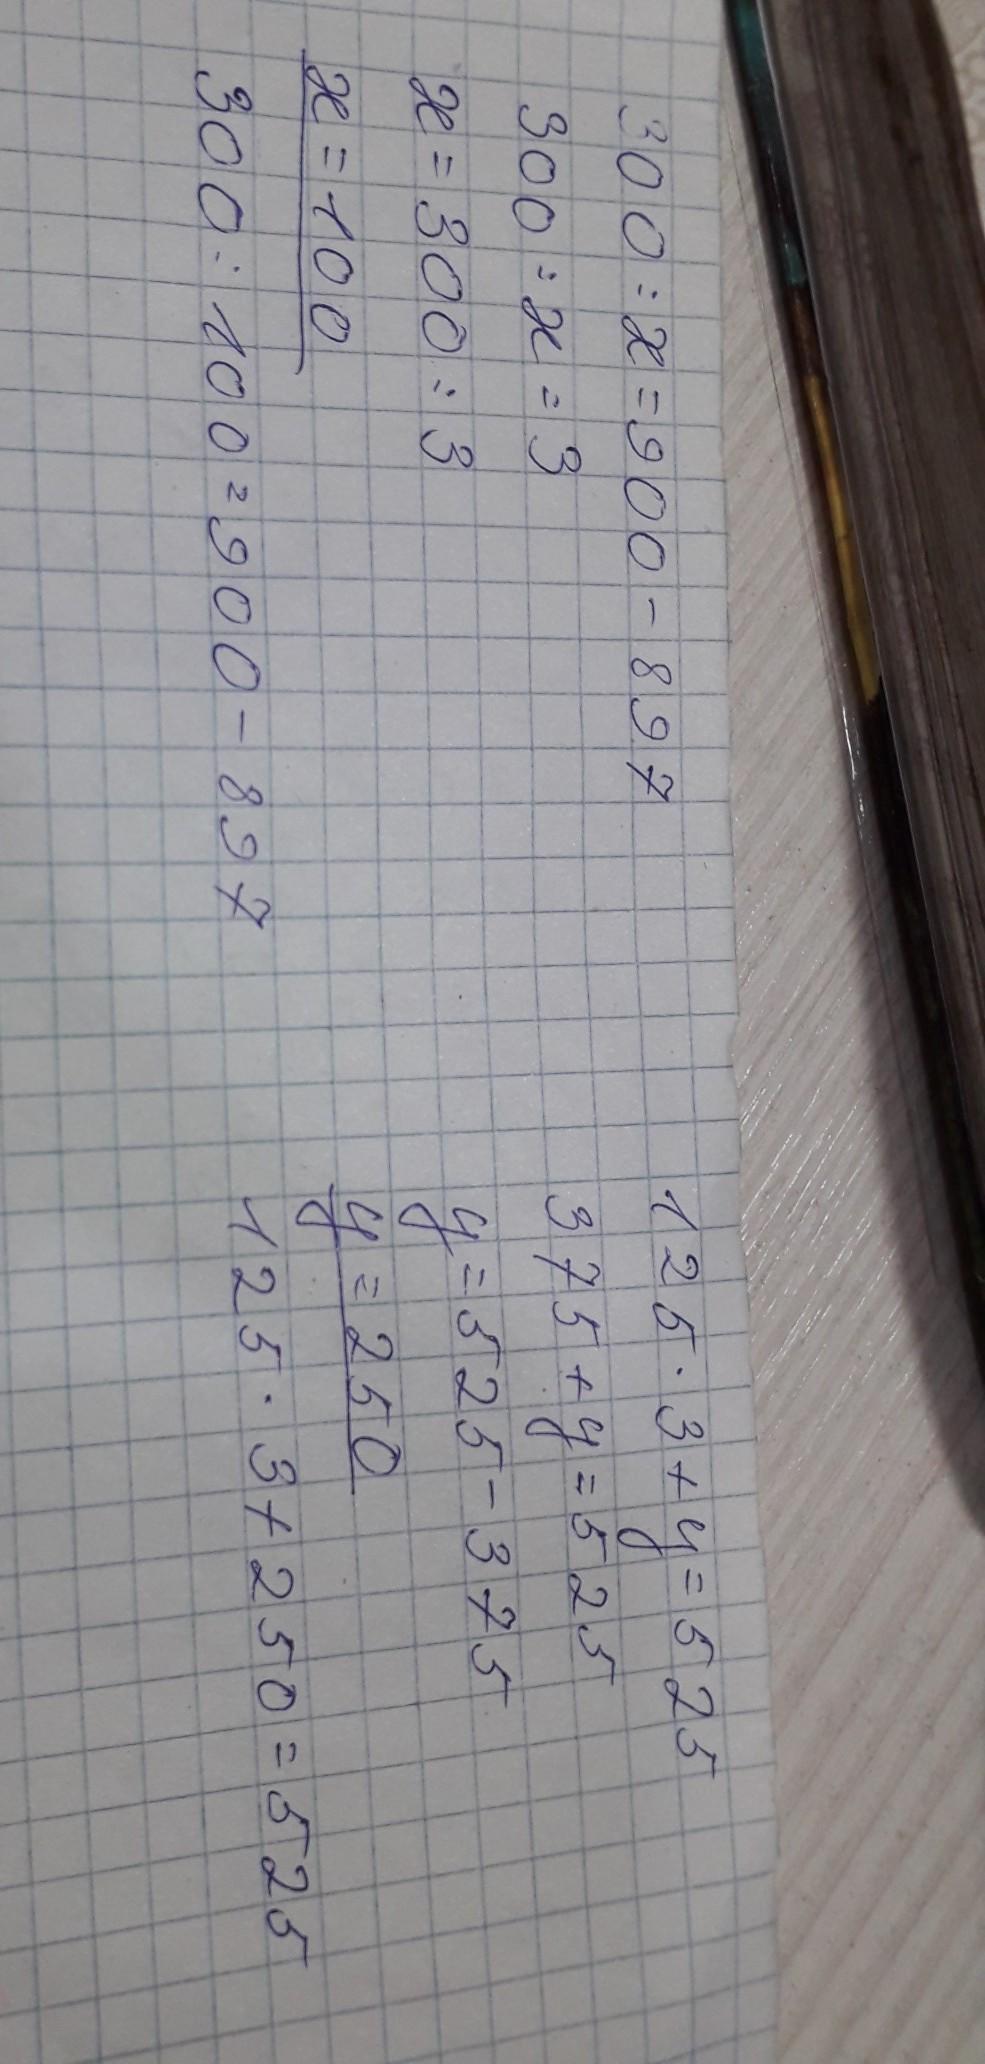 300:x=900-897
300:x=3
x=300:3
x=100
300:100=900-897
125·3+y=525
375+y=525
y=525-375
y=250
125·3+250=525